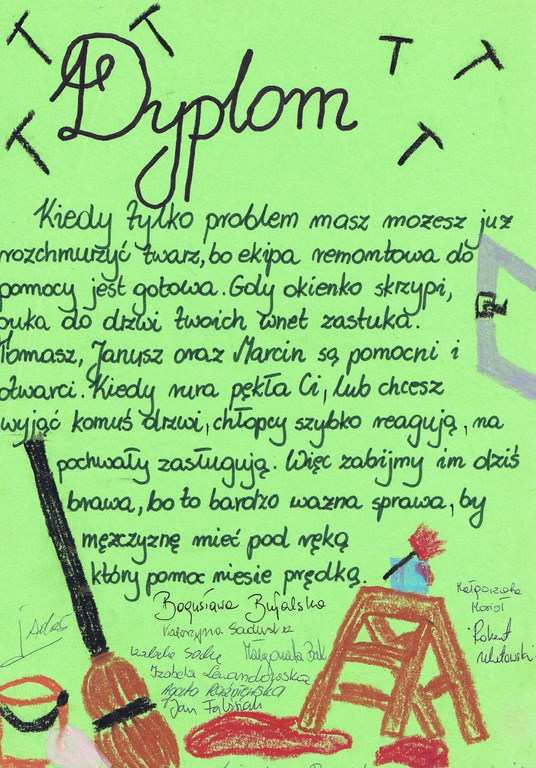 Dyplom
Kiedy tylko problem masz możesz już
rozchmurzyć twarz, bo ekipa remontowa do
pomocy jest gotowa. Gdy okienko skrzypi,
puka do drzwi twoich wnet zastuka.
Tomasz, Janusz oraz Marcin są pomocni i
otwarci. Kiedy rura pękła Ci, lub chcesz
wyjąć komuś drzwi, chłopcy szybko reagują, na
pochwały zasługują. Więc zabijmy im dziś
brawa, bo to bardzo ważna sprawa, by
mężczyznę mieć pod ręką
który pomoc niesie prędką.
Bogusława Bufalska
Małgorzata
Katarzyna
Robert
Małgorzata Bąk
Izabela Lewandowska
Agata
Jan